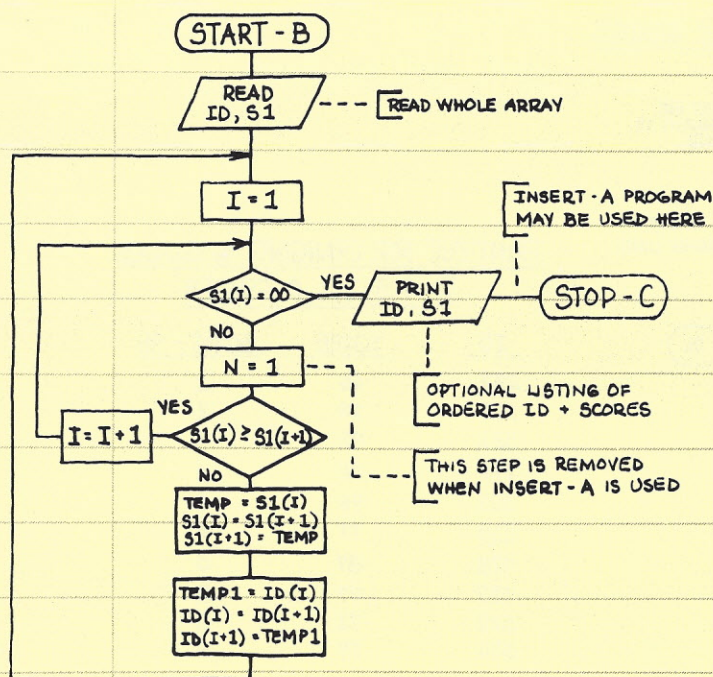 START - B
READ
ID, S1
READ WHOLE ARRAY
I = 1
INSERT - A PROGRAM
MAY BE USED HERE
S1(I) = 00
YES
PRINT
ID, S1
STOP - C
NO
N = 1
OPTIONAL LISTING OF
ORDERED ID + SCORES
I = I + 1
YES
S1(I) ≥ S1(I+1)
THIS STEP IS REMOVED
WHEN INSERT - A IS USED
NO
TEMP = S1(I)
S1(I) = S1(I+1)
S1(I+1) = TEMP
TEMP1 = ID(I)
ID(I) = ID(I+1)
ID(I+1) = TEMP1